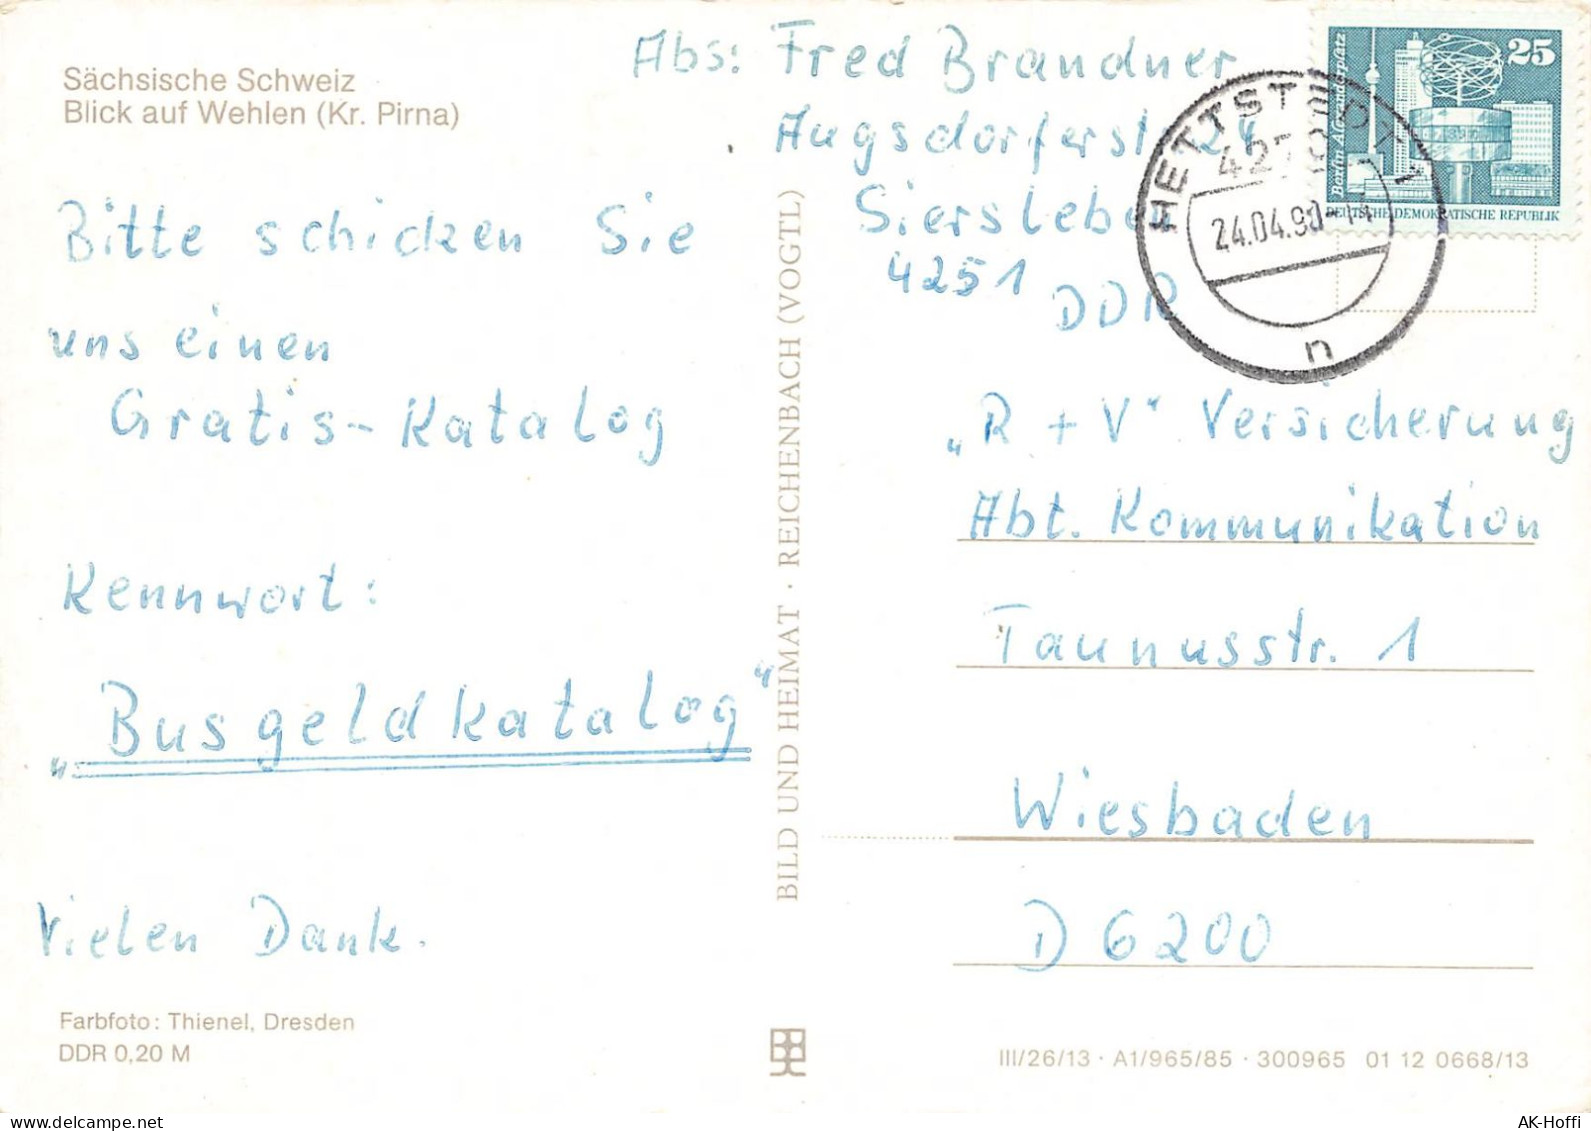 Sächsische Schweiz
Blick auf Wehlen (Kr. Pirna)
Bitte schicken Sie
uns einen
Gratis-Katalog
Kennwort:
„Busgeldkatalog"
Vielen Dank.
Farbfoto: Thienel, Dresden
DDR 0,20 M
BILD UND HEIMAT · REICHENBACH (VOGTL)
Abs: Fred Brandner
Augsdorferst 24
Siersleben
4251 DDR
Berlin Alexanderplatz
25
DEUTSCHE DEMOKRATISCHE REPUBLIK
HETTSTEDT 1
4270
24.04.90-14
n
„R + V" Versicherung
Abt. Kommunikation
Taunusstr. 1
Wiesbaden
D 6200
III/26/13 · A1/965/85 · 300965 01 12 0668/13
delcampe.net
AK-Hoffi